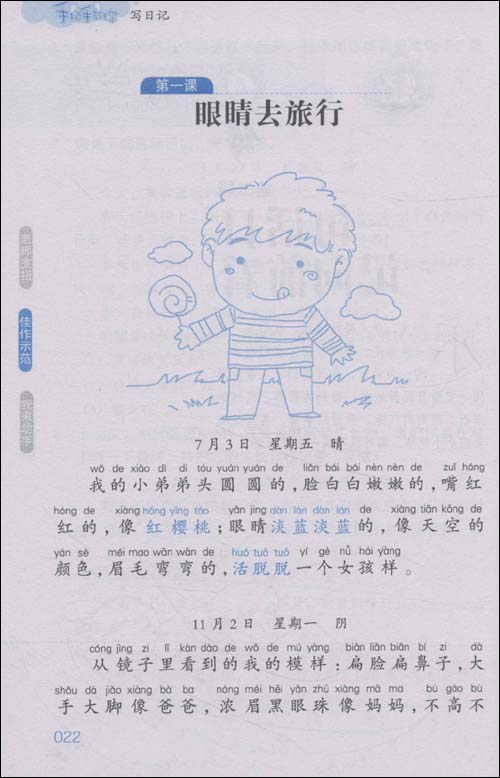 手拉手教你 写日记
第一课
眼睛去旅行
佳作示范
7月3日 星期五 晴
wǒ de xiǎo dì di tóu yuán yuán de liǎn bái bái nèn nèn de zuǐ hóng
我的小弟弟头圆圆的,脸白白嫩嫩的,嘴红
hóng de xiàng hóng yīng táo yǎn jing dàn lán dàn lán de xiàng tiān kōng de
红的,像红樱桃;眼睛淡蓝淡蓝的,像天空的
yán sè méi mao wān wān de huó tuō tuō yí gè nǚ hái yàng
颜色,眉毛弯弯的,活脱脱一个女孩样。
11月2日 星期一 阴
cóng jìng zi lǐ kàn dào de wǒ de mú yàng biǎn liǎn biǎn bí zi dà
从镜子里看到的我的模样:扁脸扁鼻子,大
shǒu dà jiǎo xiàng bà ba nóng méi hēi yǎn zhū xiàng mā ma bù gāo bù
手大脚像爸爸,浓眉黑眼珠像妈妈,不高不
022